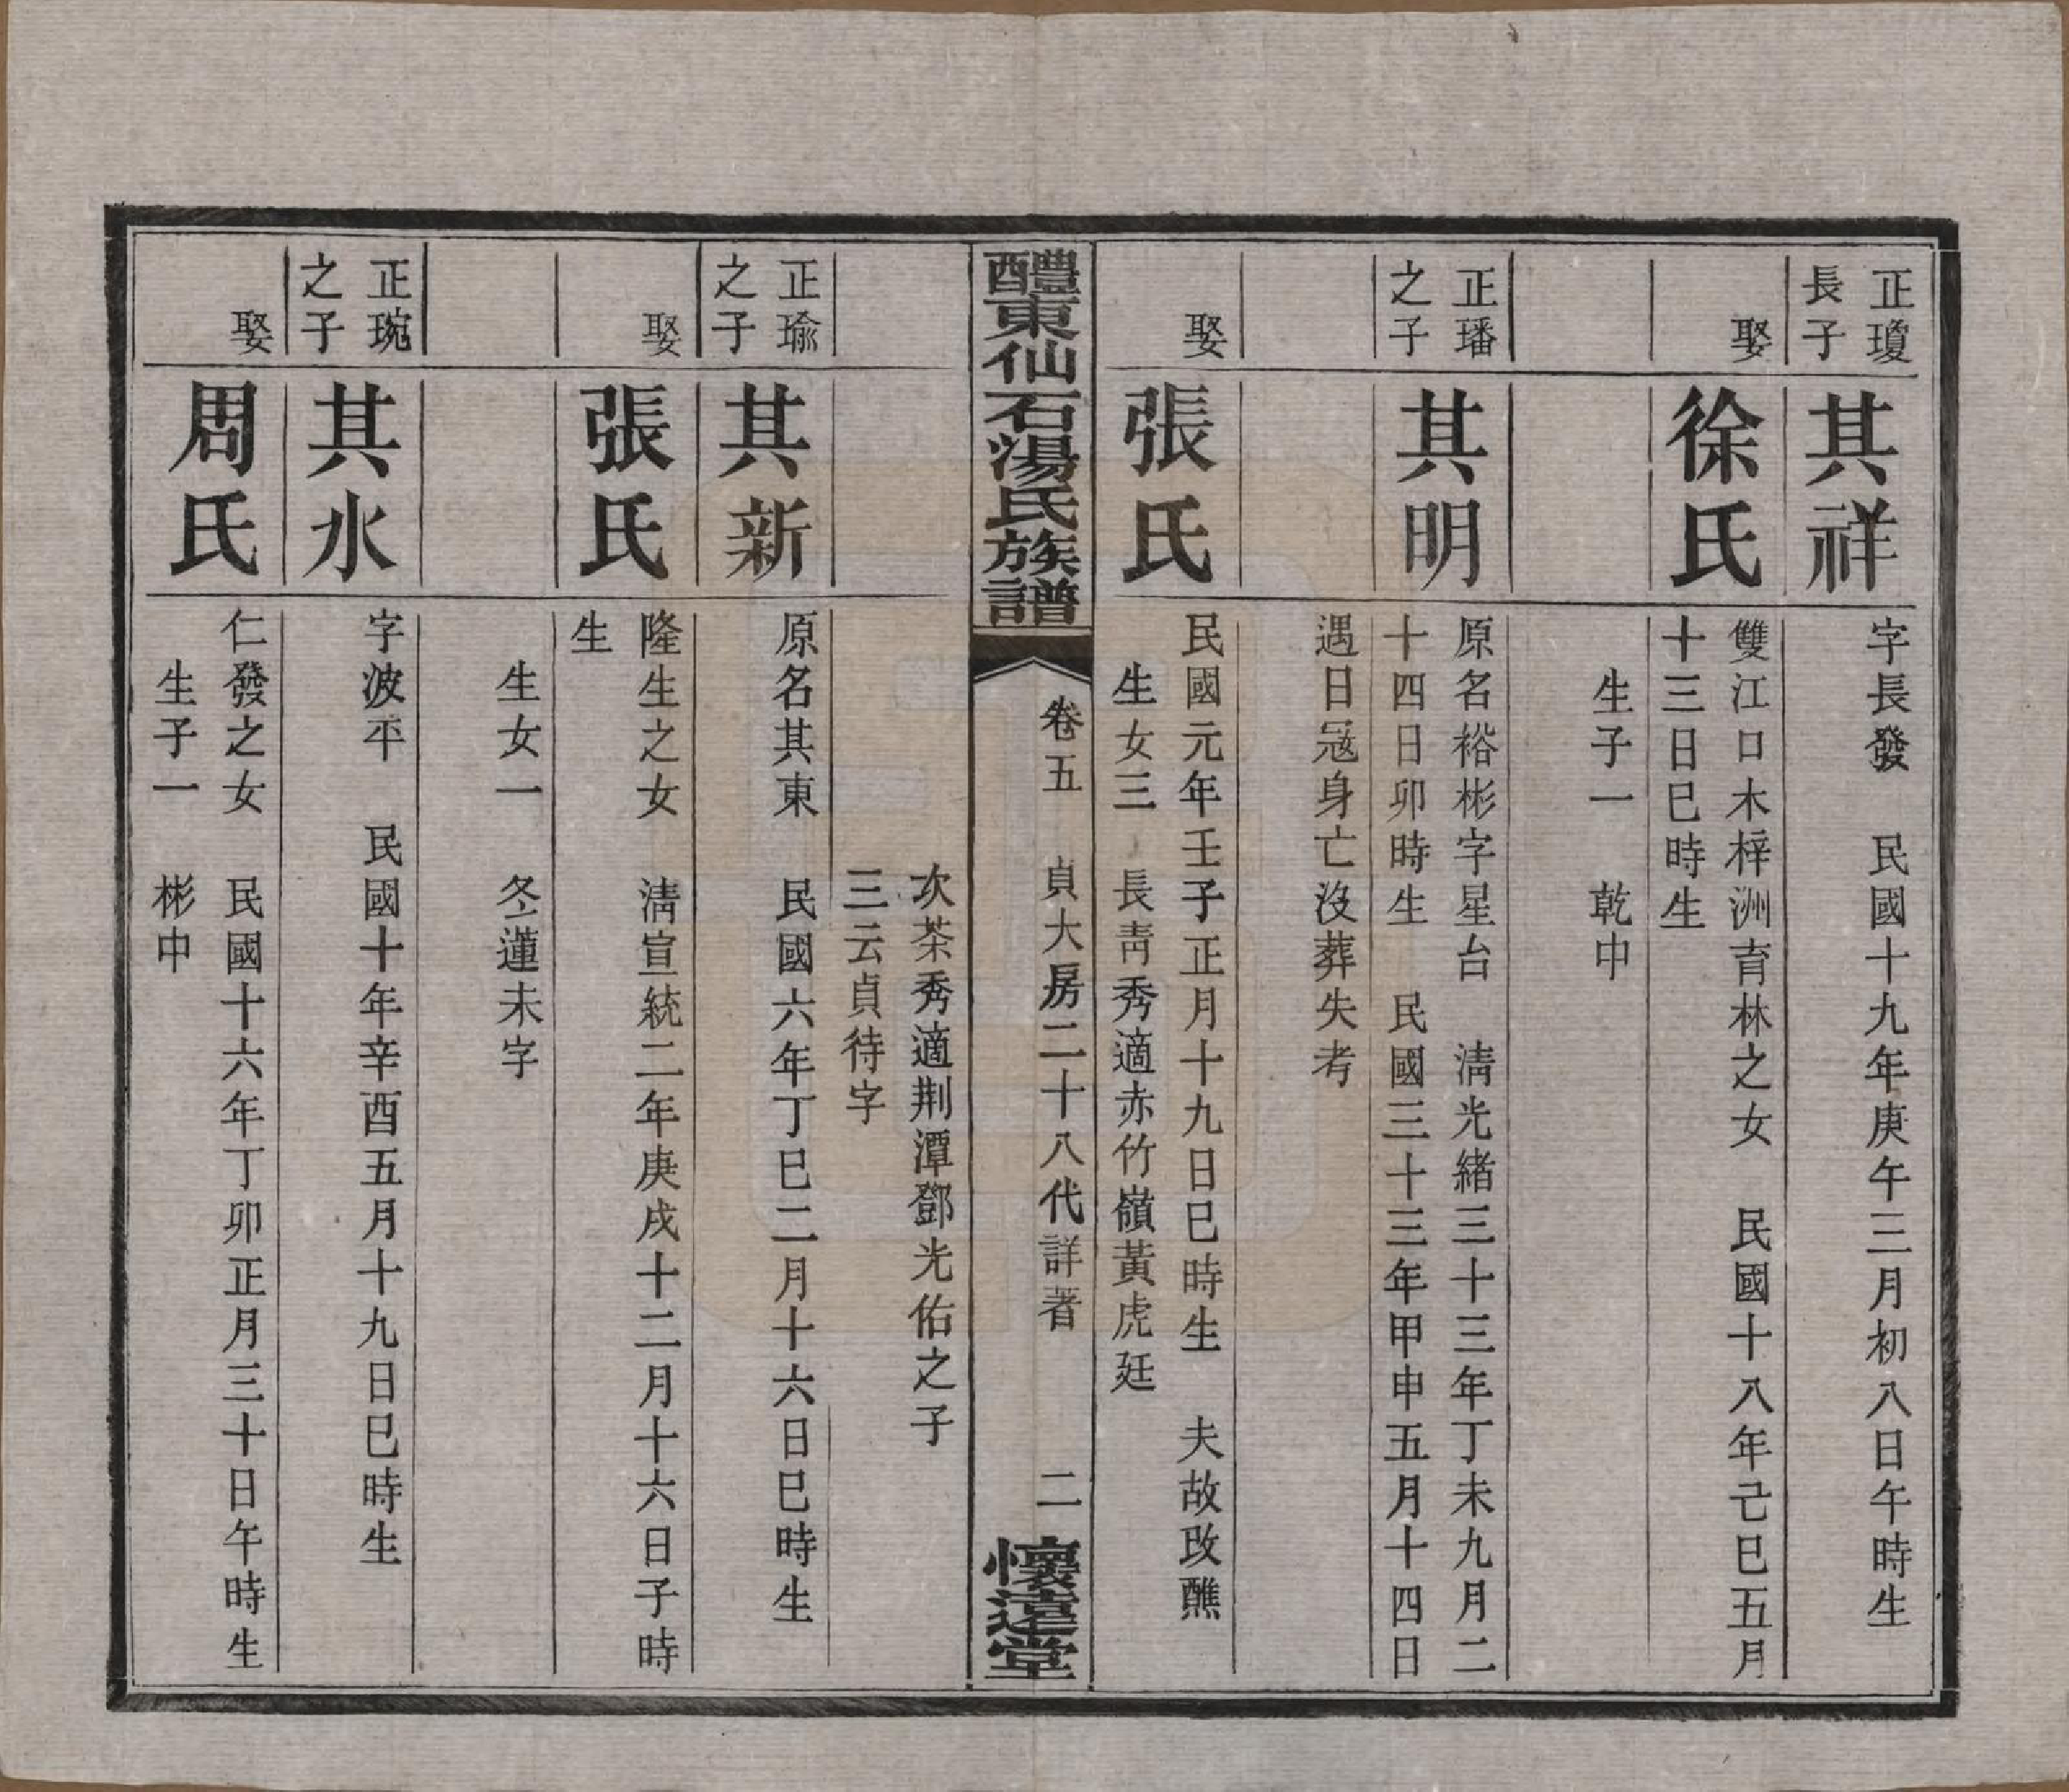 正瓊
長子
其祥
字長發　民國十九年庚午三月初八日午時生
娶
徐氏
雙江口木梓洲育林之女　民國十八年己巳五月
十三日巳時生
生子一　乾中
正璠
之子
其明
原名裕彬字星台　清光緒三十三年丁未九月二
十四日卯時生　民國三十三年甲申五月十四日
遇日冦身亡没葬失考
娶
張氏
民國元年壬子正月十九日巳時生　夫故改醮
生女三　長青秀適赤竹嶺黃虎廷
醴東仙石湯氏族譜
卷五　貞大房二十八代詳著　二
懷遠堂
次茶秀適荆潭鄧光佑之子
三云貞待字
正瑜
之子
其新
原名其東　民國六年丁巳二月十六日巳時生
娶
張氏
隆生之女　清宣統二年庚戌十二月十六日子時
生
生女一　冬蓮未字
正琬
之子
其水
字波平　民國十年辛酉五月十九日巳時生
娶
周氏
仁發之女　民國十六年丁卯正月三十日午時生
生子一　彬中